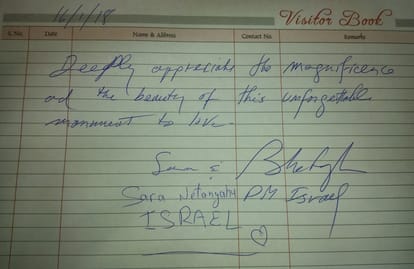 16/1/18
Visitor Book
S. No. Date Name & Address Contact No. Remarks
Deeply appreciate the magnificence
and the beauty of this unforgettable
monument to love.
Sara &
Sara Netanyahu PM Israel
ISRAEL